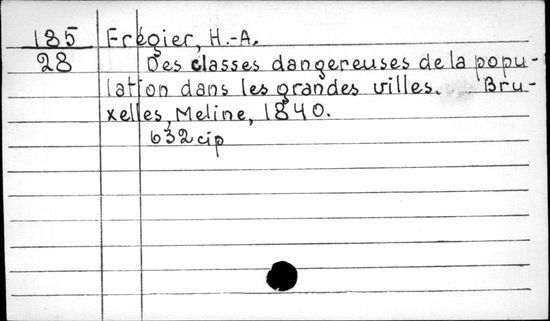 185 Frégier, H.-A.
28 Des classes dangereuses de la popu-
lation dans les grandes villes. Bru-
xelles, Meline, 1840.
632 cip